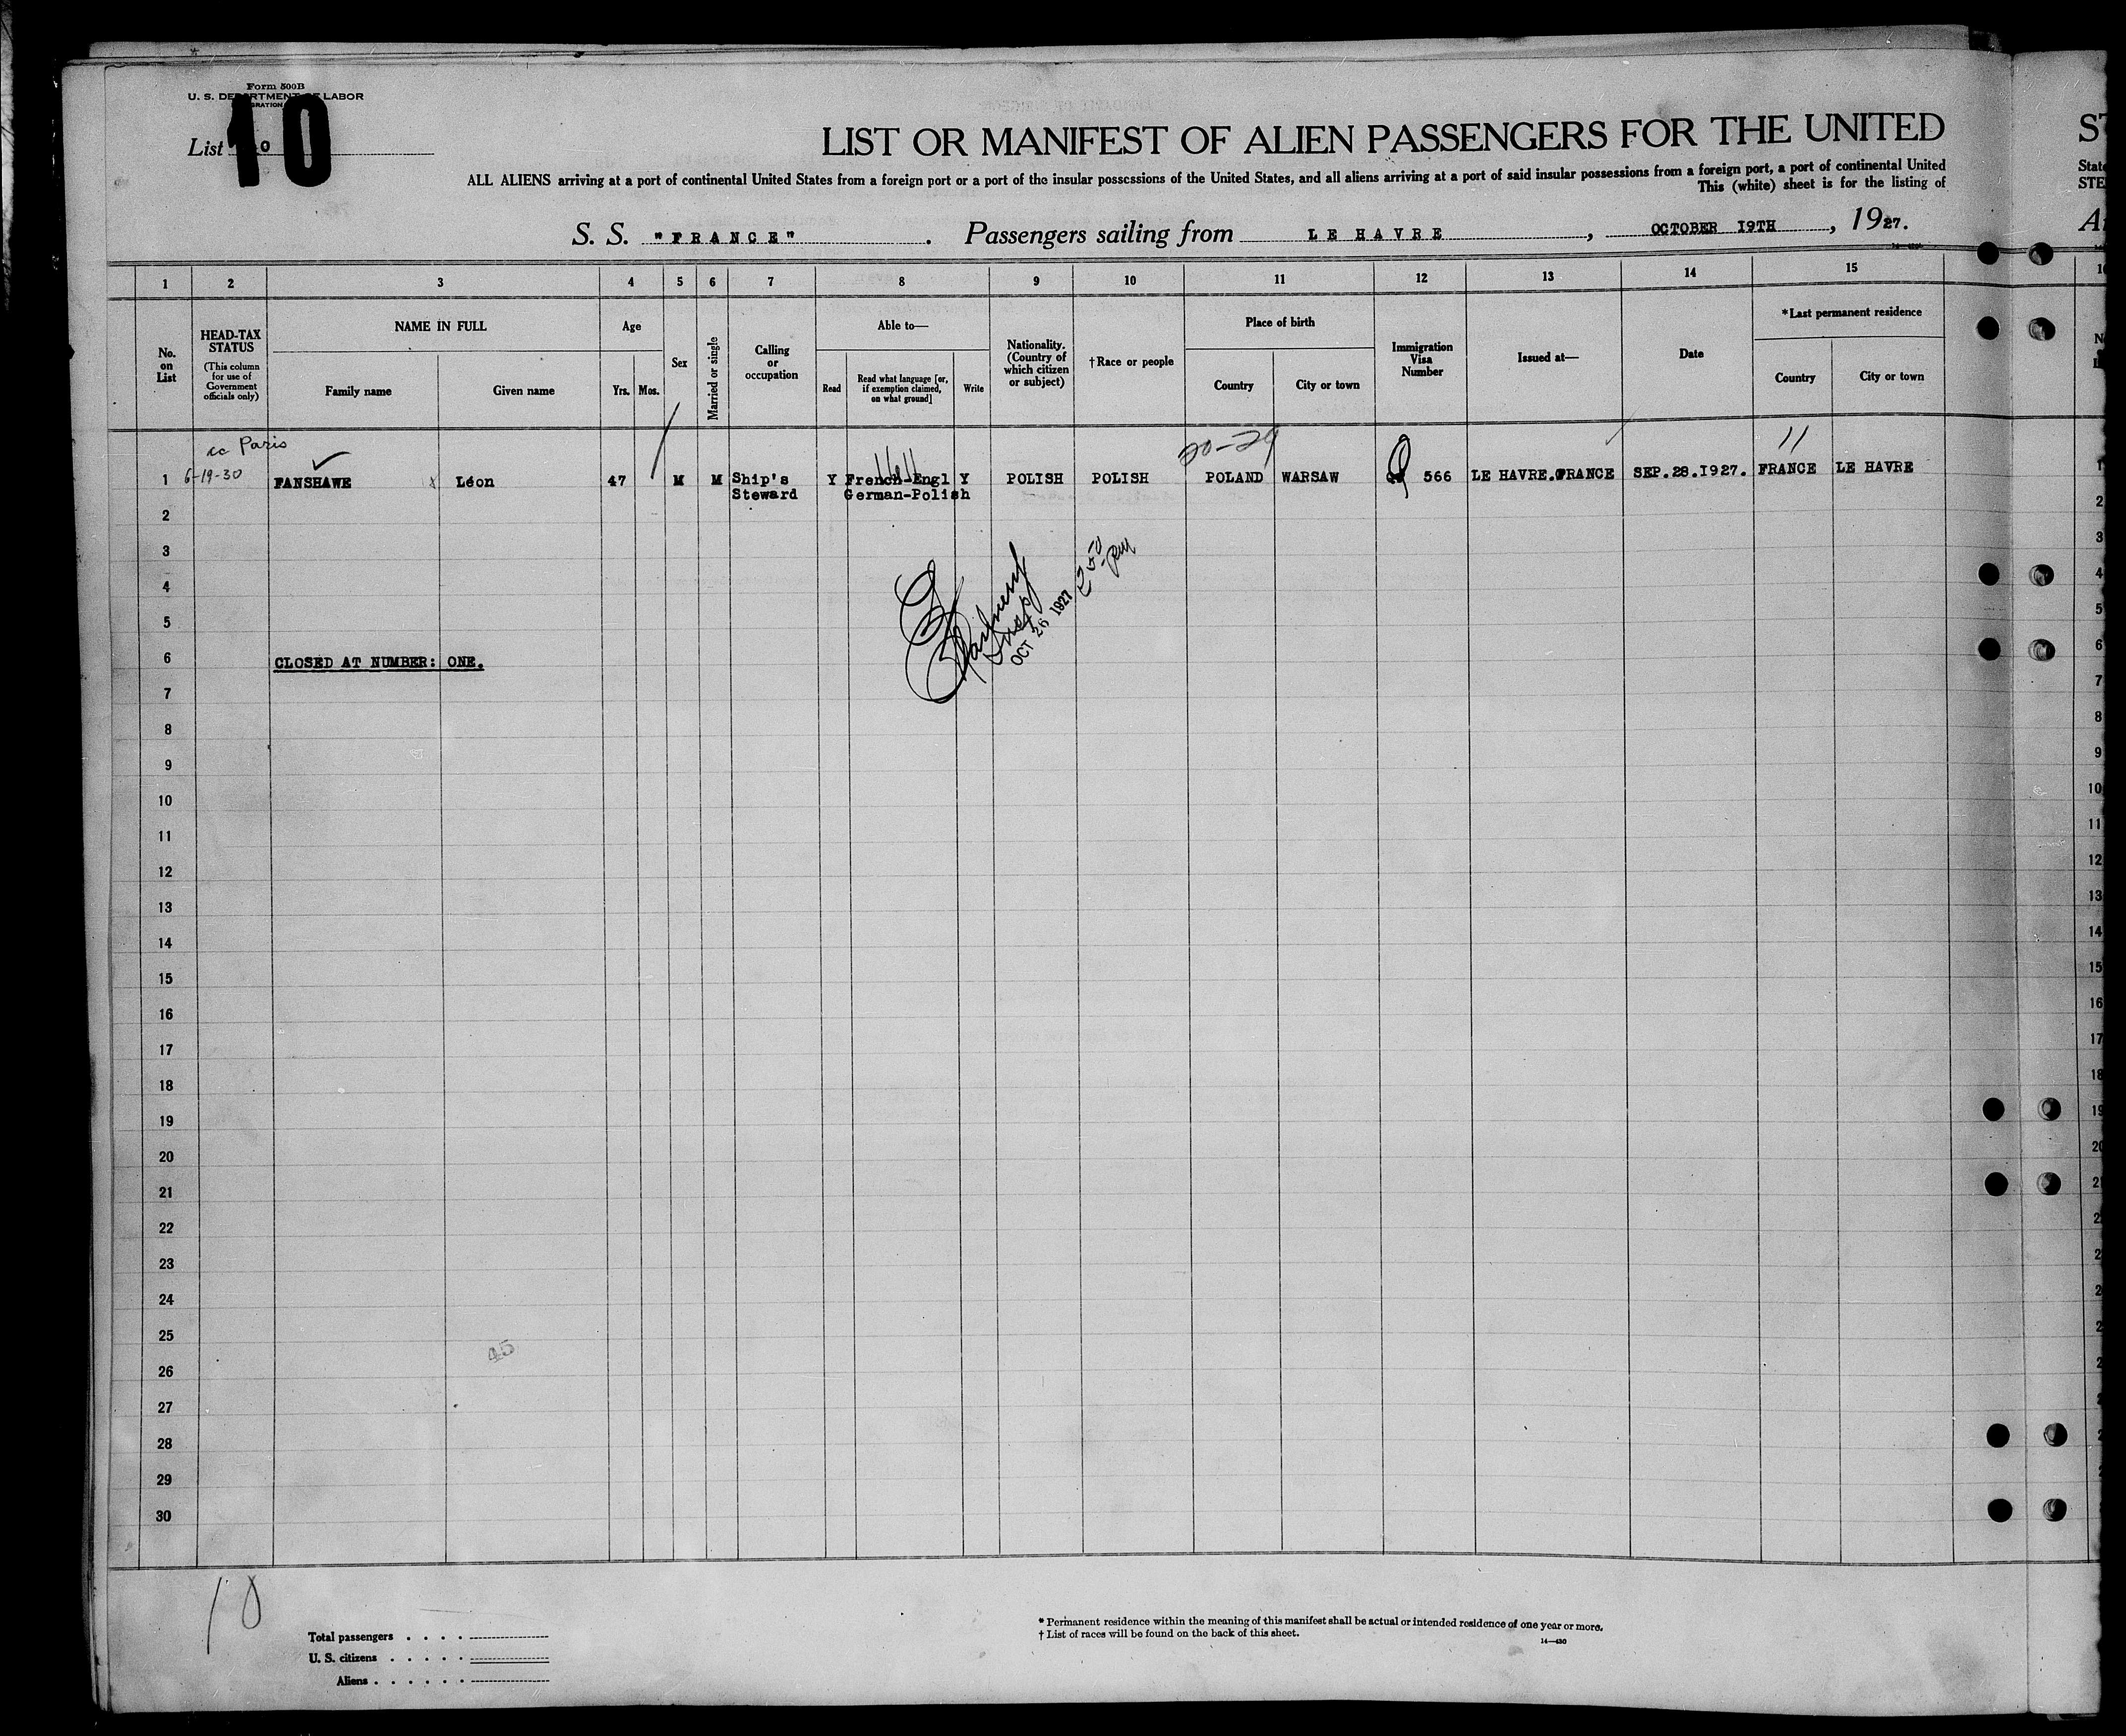 Form 500B
U. S. DEPARTMENT OF LABOR
10
List
LIST OR MANIFEST OF ALIEN PASSENGERS FOR THE UNITED
ALL ALIENS arriving at a port of continental United States from a foreign port or a port of the insular possessions of the United States, and all aliens arriving at a port of said insular possessions from a foreign port, a port of continental United
This (white) sheet is for the listing of
S. S. "FRANCE". Passengers sailing from LE HAVRE, OCTOBER 19TH, 1927.
1 2 3 4 5 6 7 8 9 10 11 12 13 14 15
No. on List
HEAD-TAX STATUS
(This column for use of Government officials only)
NAME IN FULL
Family name
Given name
Age
Yrs. Mos.
Sex
Married or single
Calling or occupation
Able to—
Read
Read what language [or, if exemption claimed, on what ground]
Write
Nationality. (Country of which citizen or subject)
†Race or people
Place of birth
Country
City or town
Immigration Visa Number
Issued at—
Date
*Last permanent residence
Country
City or town
Paris
6-19-30
11
1 FANSHAWE Léon 47 M M Ship's Y French-Engl Y POLISH POLISH POLAND WARSAW 566 LE HAVRE.FRANCE SEP.28.1927. FRANCE LE HAVRE
Steward German-Polish
2
3
4
5
250 pm
OCT 26 1927
6 CLOSED AT NUMBER: ONE.
7
8
9
10
11
12
13
14
15
16
17
18
19
20
21
22
23
24
25
26
27
28
29
30
10
Total passengers
U. S. citizens
Aliens
* Permanent residence within the meaning of this manifest shall be actual or intended residence of one year or more.
† List of races will be found on the back of this sheet.
14—430